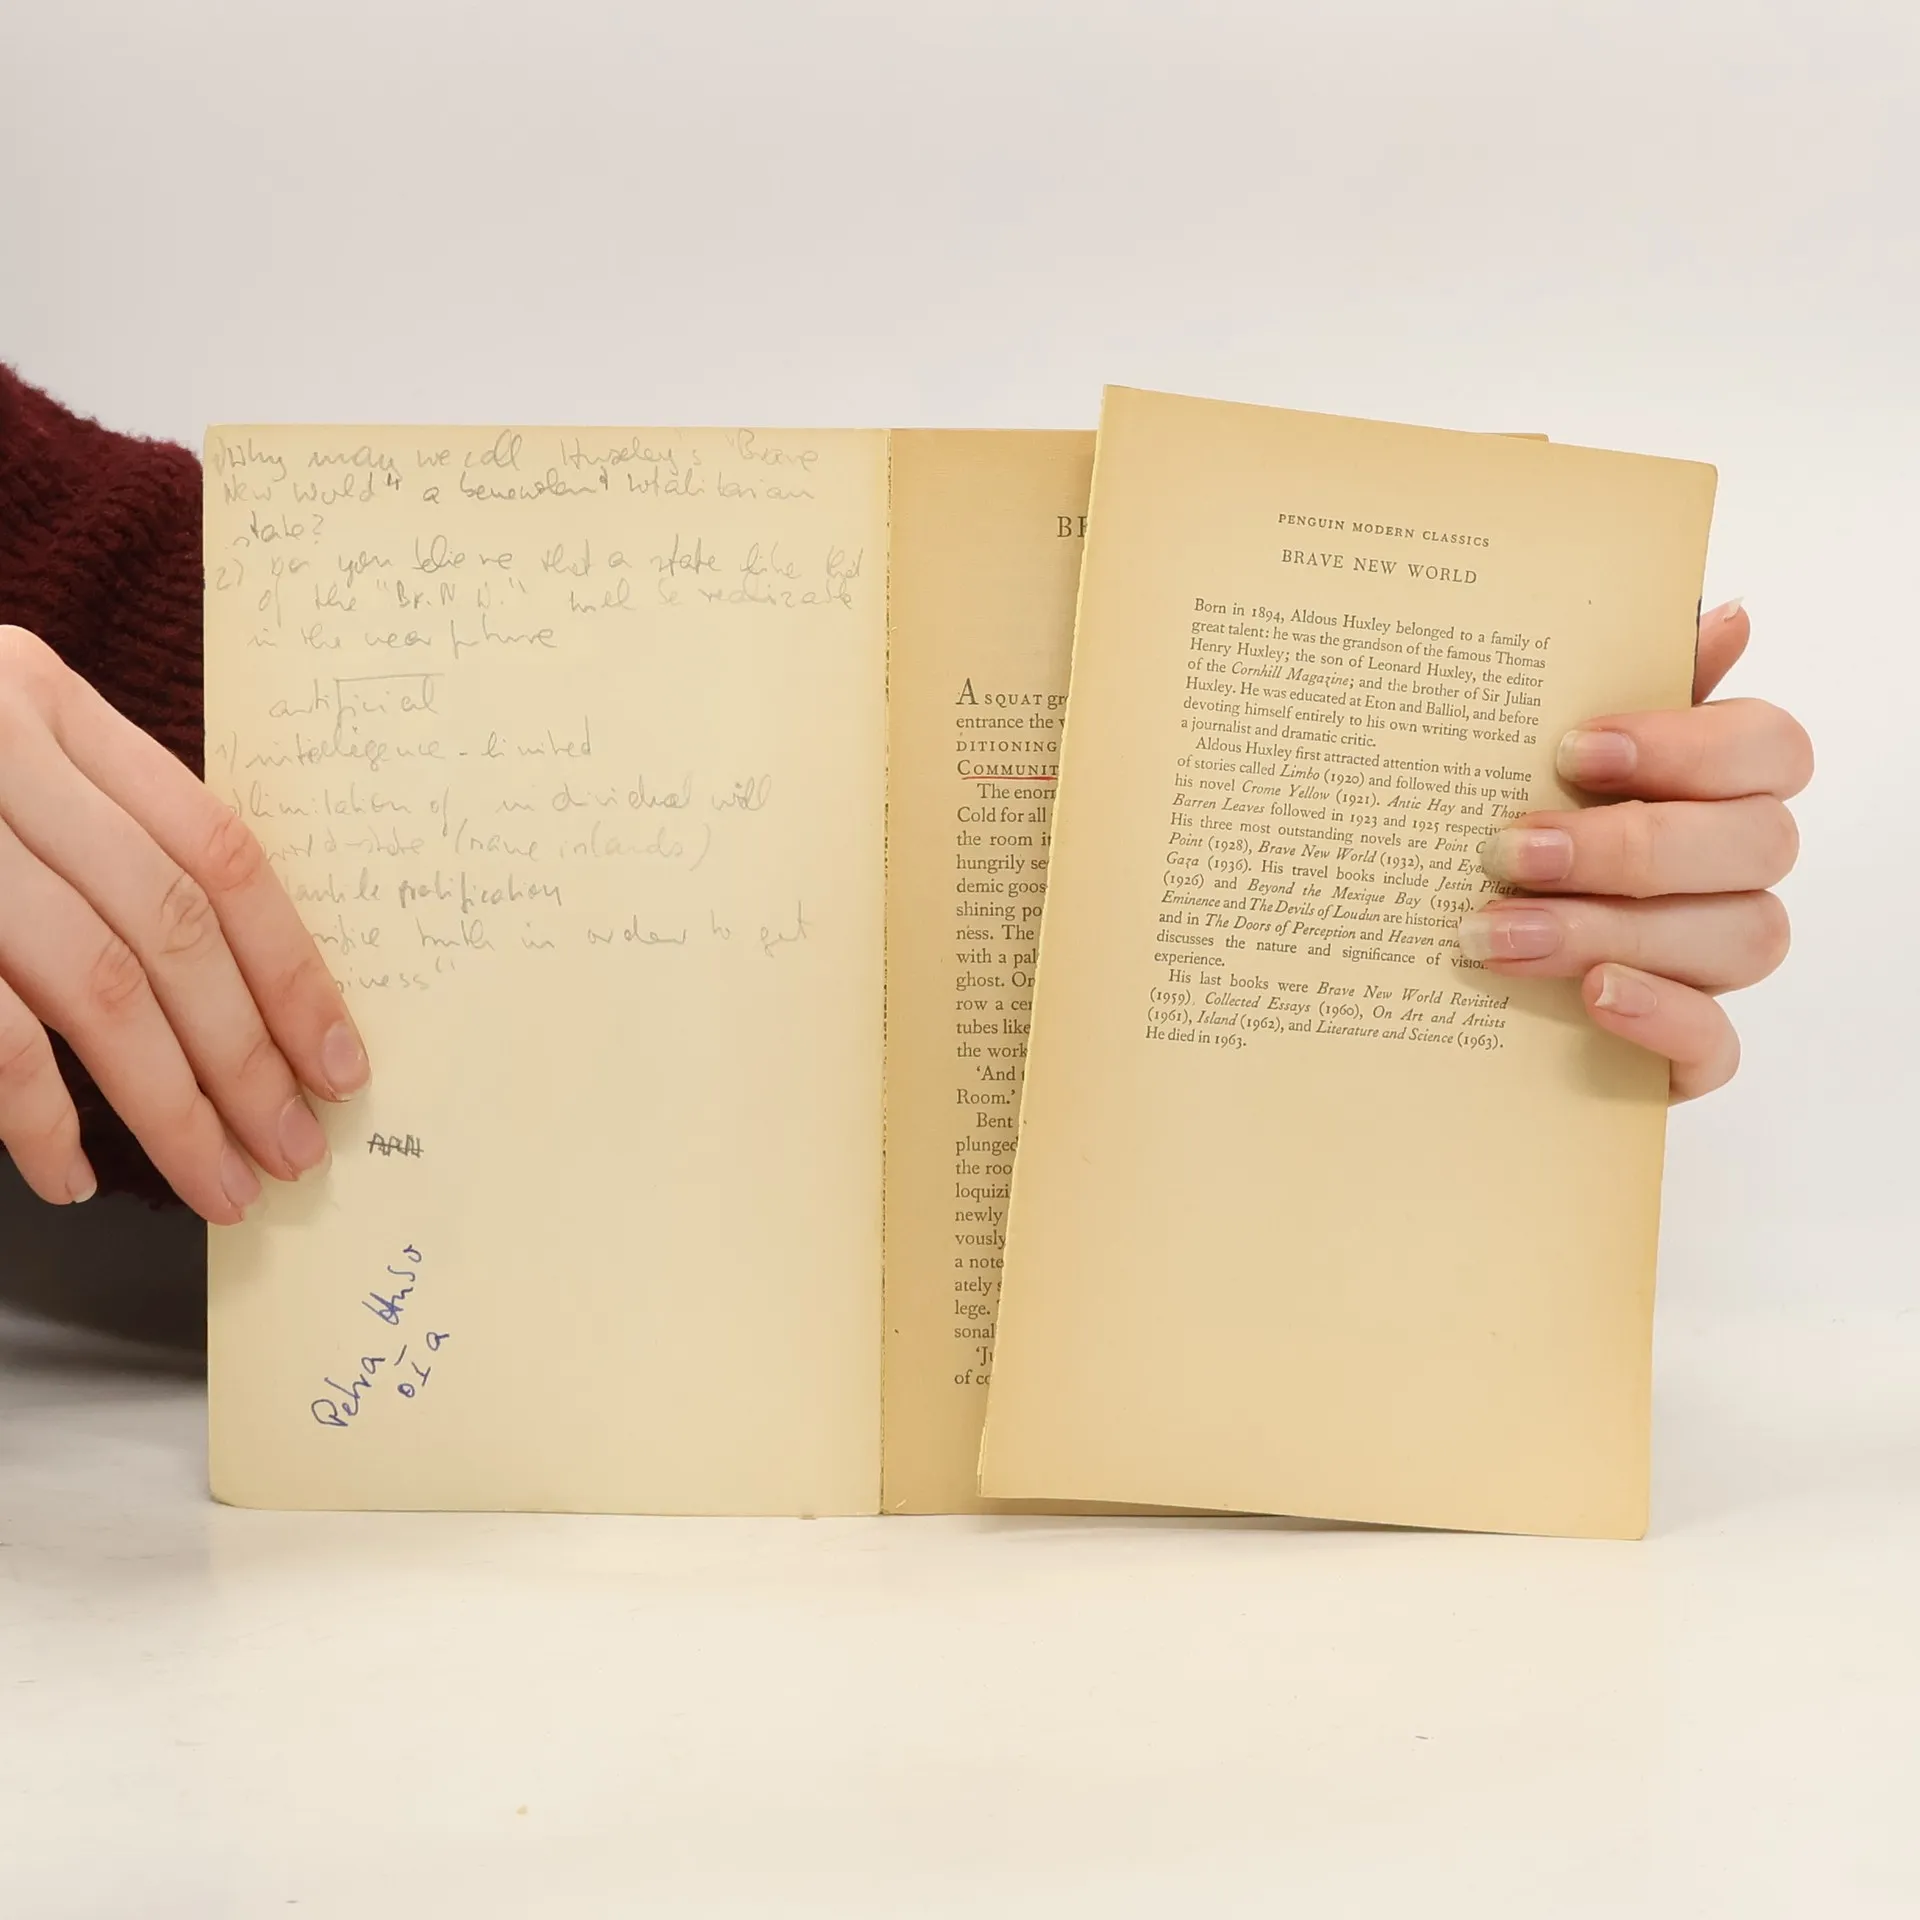 1) Why may we call Huxeley's "Brave
New World" a benevolent totalitarian
state?
2) Do you believe that a state like that
of the "Br. N W." will be realizable
in the near future
artificial
1) intelligence - limited
limitation of individual will
world-state (save islands)
gratification
truth in order to get
iness"
Petra
OIa
BR
A SQUAT gr
entrance the
DITIONING
COMMUNIT
The enor
Cold for all
the room i
hungrily se
demic goos
shining po
ness. The
with a pal
ghost. On
row a cer
tubes like
the work
‘And
Room.’
Bent
plunged
the roo
loquizi
newly
vously
a note
ately s
lege.
sonal
‘Ju
of co
PENGUIN MODERN CLASSICS
BRAVE NEW WORLD
Born in 1894, Aldous Huxley belonged to a family of
great talent: he was the grandson of the famous Thomas
Henry Huxley; the son of Leonard Huxley, the editor
of the Cornhill Magazine; and the brother of Sir Julian
Huxley. He was educated at Eton and Balliol, and before
devoting himself entirely to his own writing worked as
a journalist and dramatic critic.
Aldous Huxley first attracted attention with a volume
of stories called Limbo (1920) and followed this up with
his novel Crome Yellow (1921). Antic Hay and Those
Barren Leaves followed in 1923 and 1925 respectiv
His three most outstanding novels are Point C
Point (1928), Brave New World (1932), and Eye
Gaza (1936). His travel books include Jestin Pilate
(1926) and Beyond the Mexique Bay (1934).
Eminence and The Devils of Loudun are historical
and in The Doors of Perception and Heaven and
discusses the nature and significance of vision
experience.
His last books were Brave New World Revisited
(1959), Collected Essays (1960), On Art and Artists
(1961), Island (1962), and Literature and Science (1963).
He died in 1963.